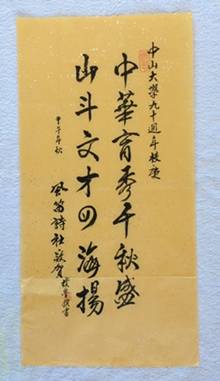 中山大學九十週年校慶
中華育秀千秋盛
山斗文才四海揚
甲午年秋
風笛詩社敬賀